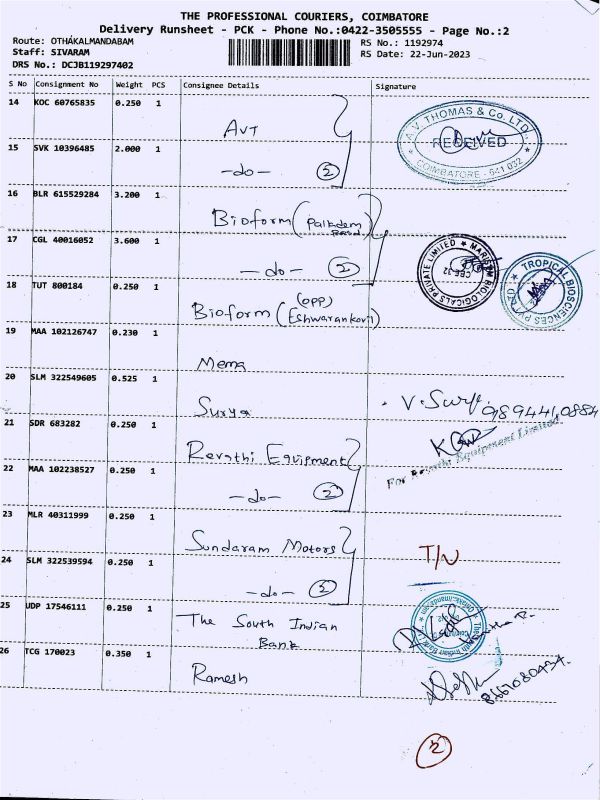 THE PROFESSIONAL COURIERS, COIMBATORE
Delivery Runsheet - PCK - Phone No.:0422-3505555 - Page No.:2
Route: OTHAKALMANDABAM
RS No.: 1192974
Staff: SIVARAM
RS Date: 22-Jun-2023
DRS No.: DCJB119297402
S No Consignment No Weight PCS Consignee Details Signature
14 KOC 60765835 0.250 1 AVT
V. THOMAS & Co. LTD.
RECEIVED
COIMBATORE - 641 032
15 SVK 10396485 2.000 1 -do- 2
16 BLR 615529284 3.200 1 Bioform (Palladam Road)
17 CGL 40016052 3.600 1 -do- 2
BIOLOGICALS PRIVATE LIMITED
CBE-32
TROPICAL BIOSCIENCES PVT LTD
18 TUT 800184 0.250 1 Bioform (OPP) Eshwarankovil)
19 MAA 102126747 0.230 1 Mema
20 SLM 322549605 0.525 1 Surya V. Surya
21 SDR 683282 0.250 1 Revathi Equipment
For Revathi Equipment Limited
22 MAA 102238527 0.250 1 -do- 2
23 MLR 40311999 0.250 1 Sundaram Motors
T/N
24 SLM 322539594 0.250 1 -do- 2
25 UDP 17546111 0.250 1 The South Indian Bank
26 TCG 170023 0.350 1 Ramesh
8667080434
2